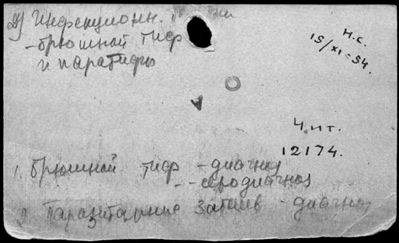 2) Инфекционн.
- брюшной тиф
и паратифы
н.с.
15/XI-54.
Ч ит.
12174.
1. брюшной тиф - диагноз
- - серодиагноз
2. Паразитарные - диагноз